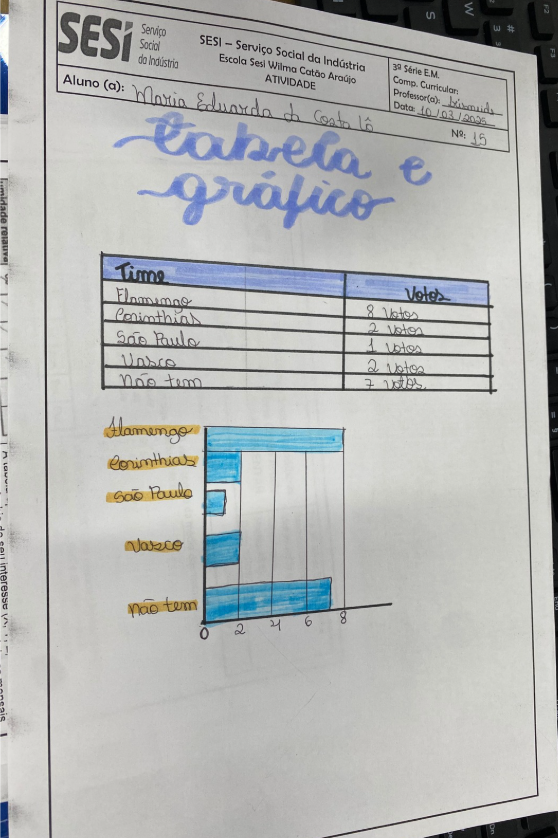 SESI Serviço
Social
da Indústria
SESI – Serviço Social da Indústria
Escola Sesi Wilma Catão Araújo
ATIVIDADE
3ª Série E.M.
Comp. Curricular:
Professor(a):
Data: 10/03/2025
Aluno (a): Maria Eduarda da Costa Lô
Nº: 15
tabela e
gráfico
Time Votos
Flamengo 8 Votos
Corinthias 2 Votos
São Paulo 1 Votos
Vasco 2 Votos
não tem 7 Votos.
Flamengo
Corinthias
São Paulo
Vasco
não tem
0 2 4 6 8